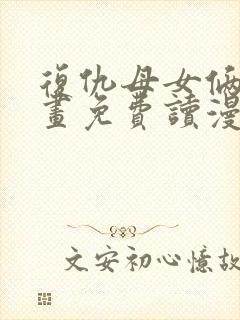 復仇母女倆
畫免費讀漫
文安初心憶故